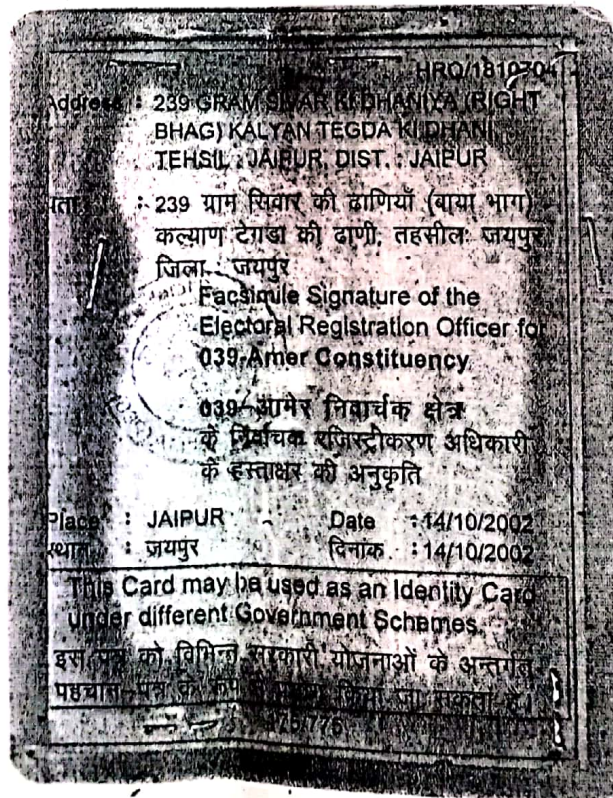 HRQ/1810704
Address : 239 GRAM SIVAR KI DHANIYA (RIGHT
BHAG) KALYAN TEGDA KI DHANI
TEHSIL : JAIPUR, DIST. : JAIPUR
: 239 ग्राम सिवार की ढाणियाँ (बाया भाग)
कल्याण टेगडा की ढाणी, तहसील: जयपुर
जिला : जयपुर
Facsimile Signature of the
Electoral Registration Officer for
039-Amer Constituency
039-आमेर निवार्चक क्षेत्र
के निर्वाचक रजिस्ट्रीकरण अधिकारी
के हस्ताक्षर की अनुकृति
Place : JAIPUR Date : 14/10/2002
स्थान : जयपुर दिनांक : 14/10/2002
This Card may be used as an Identity Card
under different Government Schemes.
इस पत्र को विभिन्न सरकारी योजनाओं के अन्तर्गत
पहचान पत्र के रूप में किया जा सकता है।